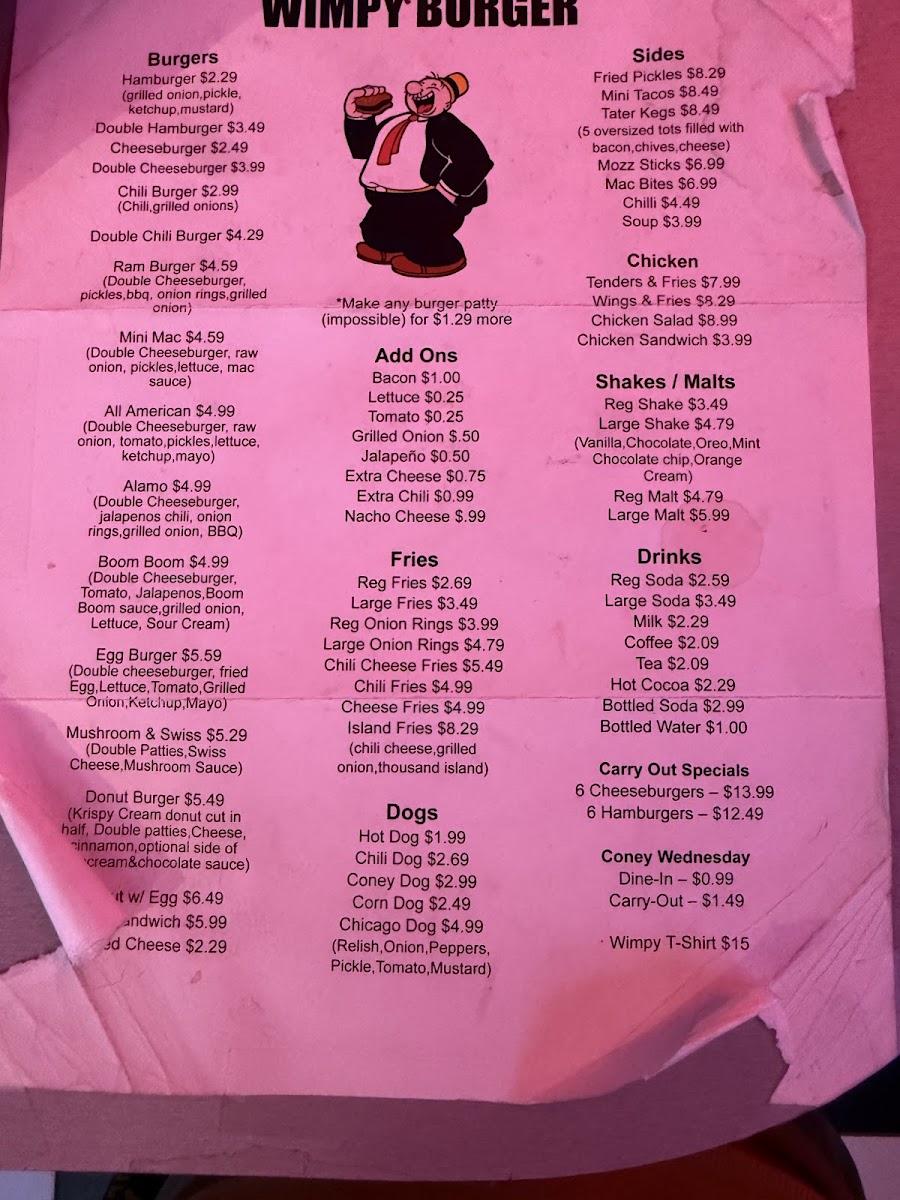 WIMPY BURGER
Burgers
Hamburger $2.29
(grilled onion,pickle,
ketchup,mustard)
Double Hamburger $3.49
Cheeseburger $2.49
Double Cheeseburger $3.99
Chili Burger $2.99
(Chili,grilled onions)
Double Chili Burger $4.29
Ram Burger $4.59
(Double Cheeseburger,
pickles,bbq, onion rings,grilled
onion)
Mini Mac $4.59
(Double Cheeseburger, raw
onion, pickles,lettuce, mac
sauce)
All American $4.99
(Double Cheeseburger, raw
onion, tomato,pickles,lettuce,
ketchup,mayo)
Alamo $4.99
(Double Cheeseburger,
jalapenos chili, onion
rings,grilled onion, BBQ)
Boom Boom $4.99
(Double Cheeseburger,
Tomato, Jalapenos,Boom
Boom sauce,grilled onion,
Lettuce, Sour Cream)
Egg Burger $5.59
(Double cheeseburger, fried
Egg,Lettuce,Tomato,Grilled
Onion,Ketchup,Mayo)
Mushroom & Swiss $5.29
(Double Patties,Swiss
Cheese,Mushroom Sauce)
Donut Burger $5.49
(Krispy Cream donut cut in
half, Double patties,Cheese,
cinnamon,optional side of
cream&chocolate sauce)
w/ Egg $6.49
$5.99
Cheese $2.29
*Make any burger patty
(impossible) for $1.29 more
Add Ons
Bacon $1.00
Lettuce $0.25
Tomato $0.25
Grilled Onion $.50
Jalapeño $0.50
Extra Cheese $0.75
Extra Chili $0.99
Nacho Cheese $.99
Fries
Reg Fries $2.69
Large Fries $3.49
Reg Onion Rings $3.99
Large Onion Rings $4.79
Chili Cheese Fries $5.49
Chili Fries $4.99
Cheese Fries $4.99
Island Fries $8.29
(chili cheese,grilled
onion,thousand island)
Dogs
Hot Dog $1.99
Chili Dog $2.69
Coney Dog $2.99
Corn Dog $2.49
Chicago Dog $4.99
(Relish,Onion,Peppers,
Pickle,Tomato,Mustard)
Sides
Fried Pickles $8.29
Mini Tacos $8.49
Tater Kegs $8.49
(5 oversized tots filled with
bacon,chives,cheese)
Mozz Sticks $6.99
Mac Bites $6.99
Chilli $4.49
Soup $3.99
Chicken
Tenders & Fries $7.99
Wings & Fries $8.29
Chicken Salad $8.99
Chicken Sandwich $3.99
Shakes / Malts
Reg Shake $3.49
Large Shake $4.79
(Vanilla,Chocolate,Oreo,Mint
Chocolate chip,Orange
Cream)
Reg Malt $4.79
Large Malt $5.99
Drinks
Reg Soda $2.59
Large Soda $3.49
Milk $2.29
Coffee $2.09
Tea $2.09
Hot Cocoa $2.29
Bottled Soda $2.99
Bottled Water $1.00
Carry Out Specials
6 Cheeseburgers – $13.99
6 Hamburgers – $12.49
Coney Wednesday
Dine-In – $0.99
Carry-Out – $1.49
Wimpy T-Shirt $15